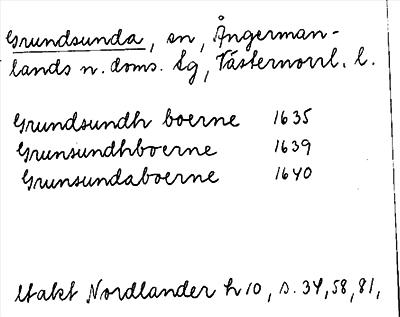 Grundsunda, sn, Ångerman-
lands n. doms. lg, Västernorrl. l.
Grundsundh boerne 1635
Grunsundhboerne 1639
Grunsundaboerne 1640
Utakt Nordlander h 10, s. 34, 58, 81,